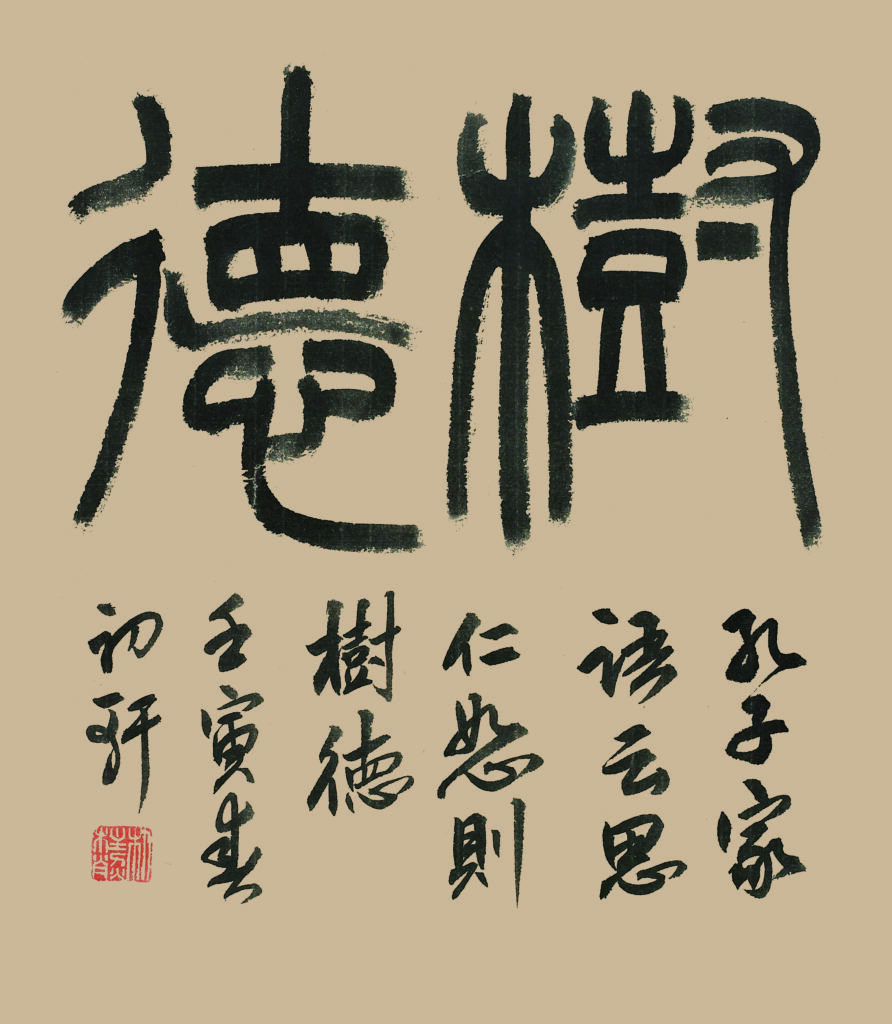 樹德
孔子家
語云思
仁恕則
樹德
壬寅春
初軒